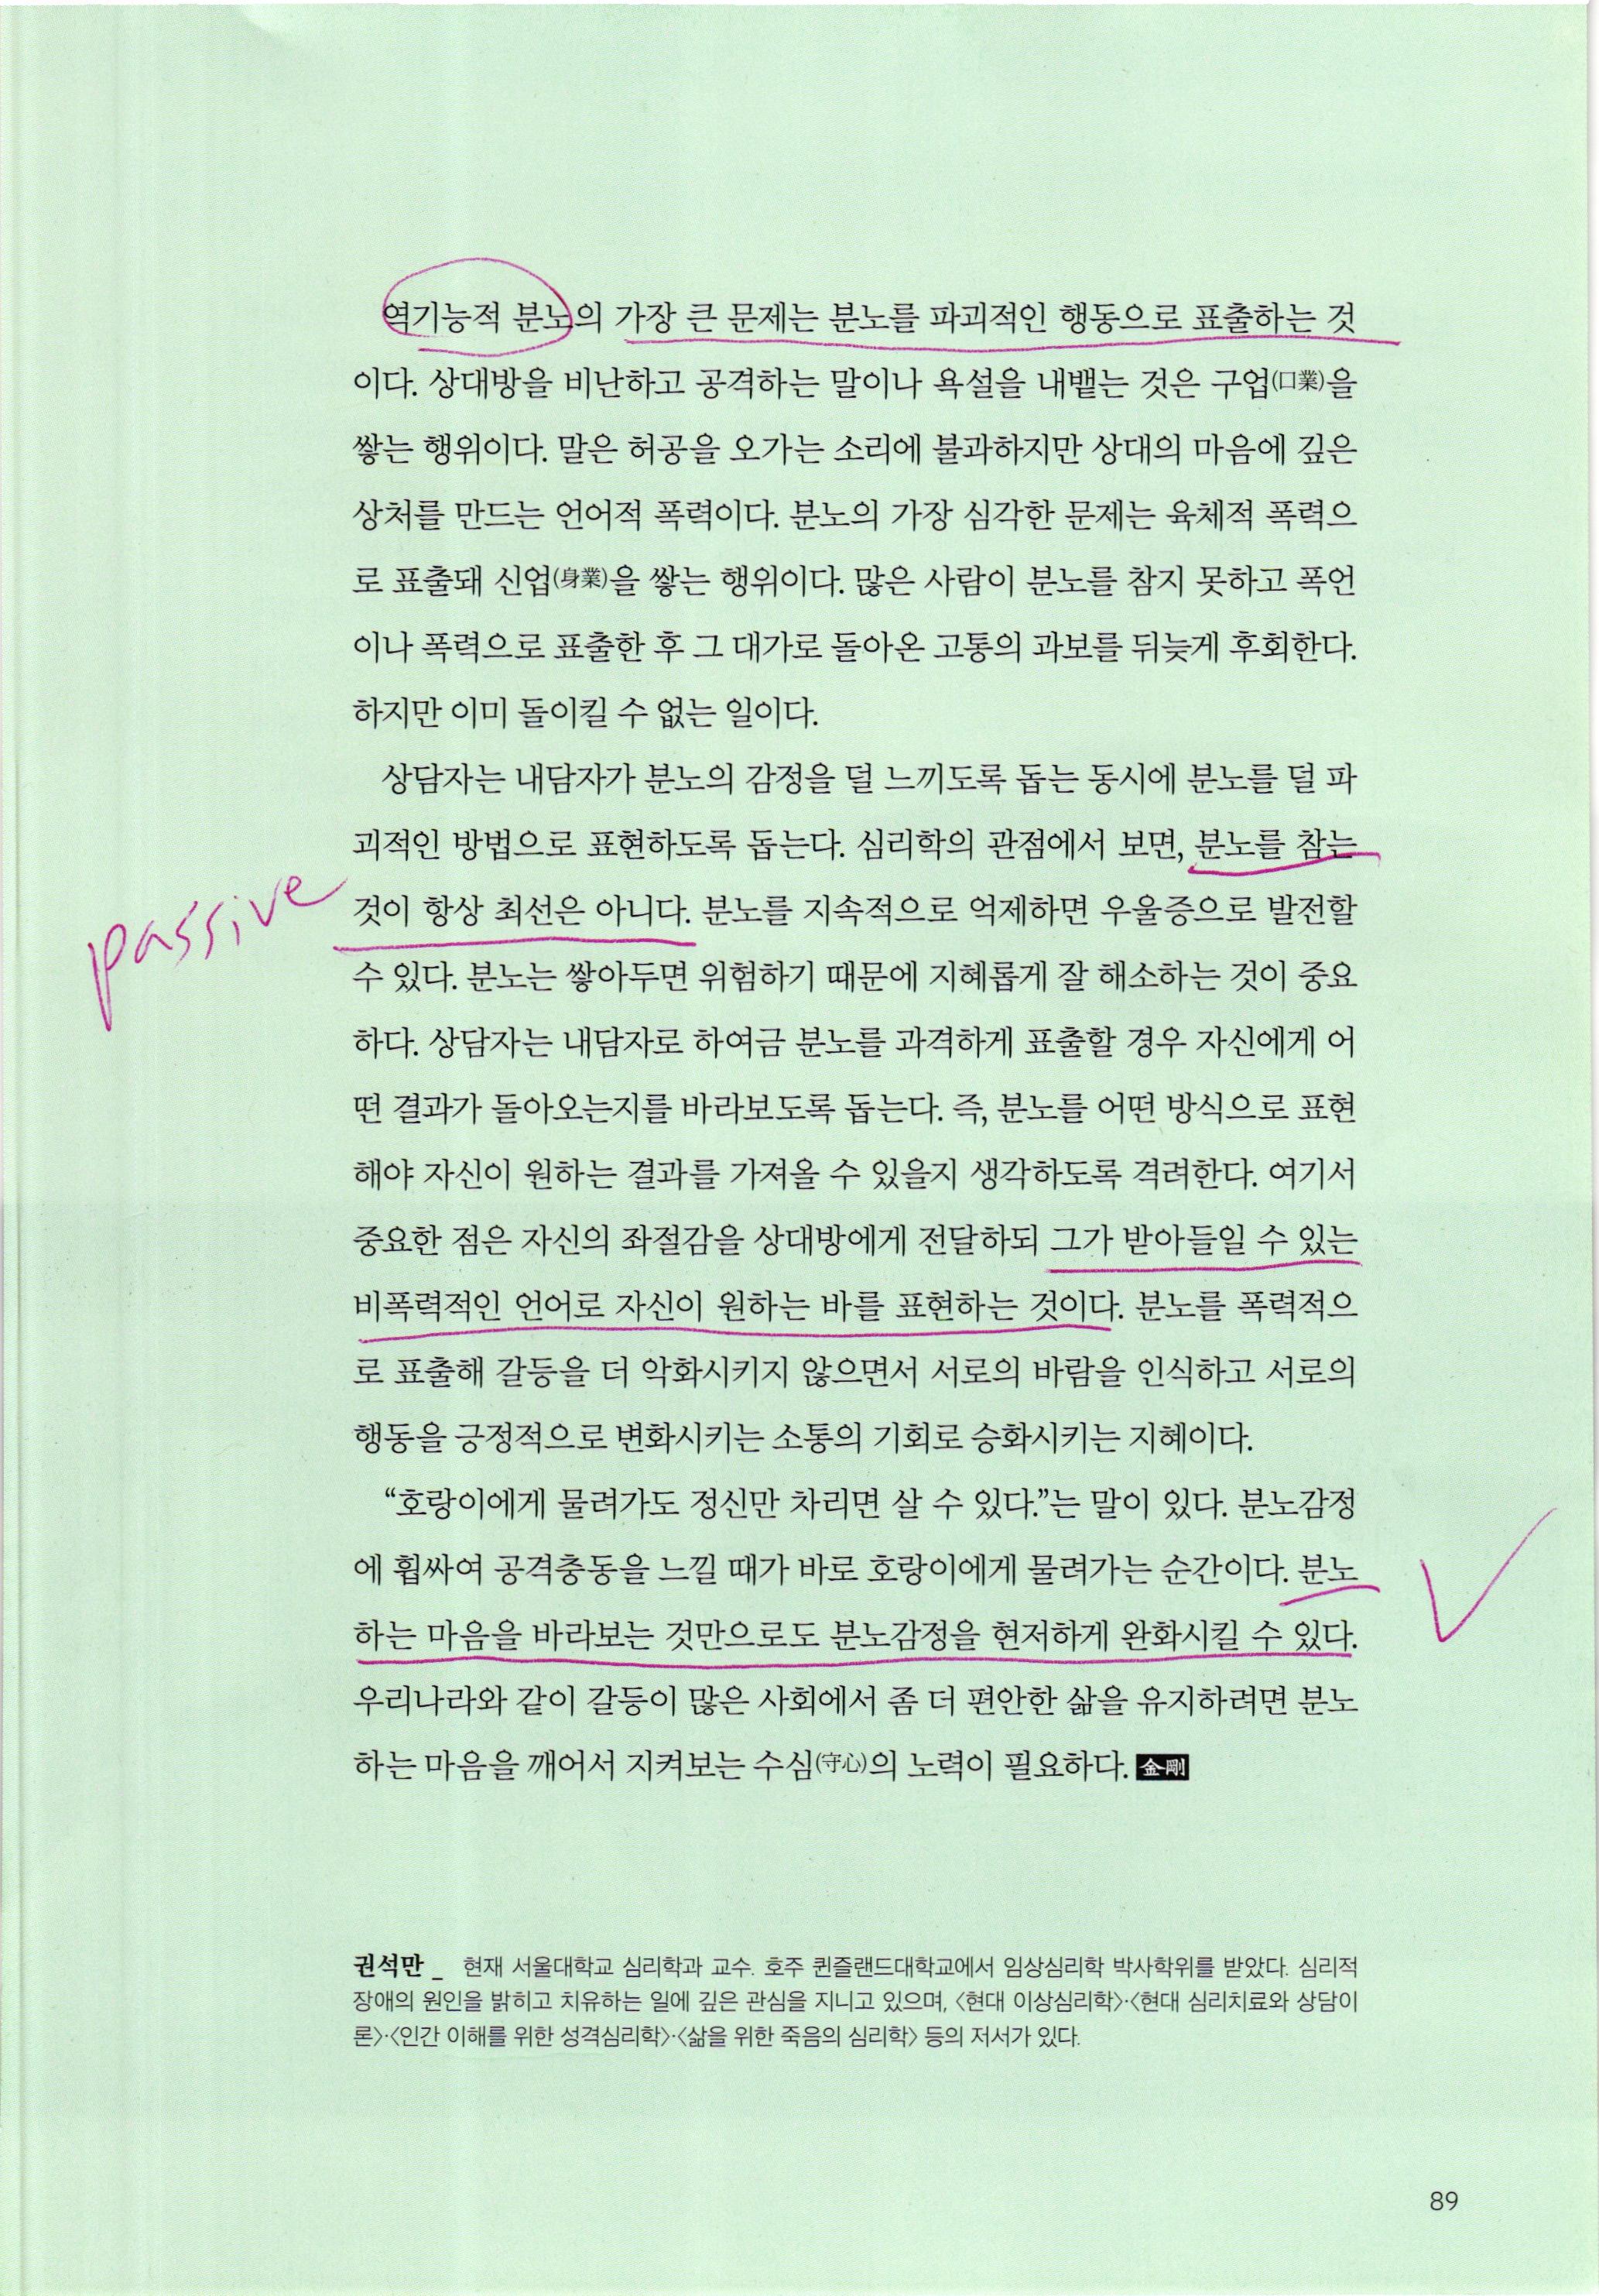 역기능적 분노의 가장 큰 문제는 분노를 파괴적인 행동으로 표출하는 것
이다. 상대방을 비난하고 공격하는 말이나 욕설을 내뱉는 것은 구업(口業)을
쌓는 행위이다. 말은 허공을 오가는 소리에 불과하지만 상대의 마음에 깊은
상처를 만드는 언어적 폭력이다. 분노의 가장 심각한 문제는 육체적 폭력으
로 표출돼 신업(身業)을 쌓는 행위이다. 많은 사람이 분노를 참지 못하고 폭언
이나 폭력으로 표출한 후 그 대가로 돌아온 고통의 과보를 뒤늦게 후회한다.
하지만 이미 돌이킬 수 없는 일이다.
상담자는 내담자가 분노의 감정을 덜 느끼도록 돕는 동시에 분노를 덜 파
괴적인 방법으로 표현하도록 돕는다. 심리학의 관점에서 보면, 분노를 참는
passive
것이 항상 최선은 아니다. 분노를 지속적으로 억제하면 우울증으로 발전할
수 있다. 분노는 쌓아두면 위험하기 때문에 지혜롭게 잘 해소하는 것이 중요
하다. 상담자는 내담자로 하여금 분노를 과격하게 표출할 경우 자신에게 어
떤 결과가 돌아오는지를 바라보도록 돕는다. 즉, 분노를 어떤 방식으로 표현
해야 자신이 원하는 결과를 가져올 수 있을지 생각하도록 격려한다. 여기서
중요한 점은 자신의 좌절감을 상대방에게 전달하되 그가 받아들일 수 있는
비폭력적인 언어로 자신이 원하는 바를 표현하는 것이다. 분노를 폭력적으
로 표출해 갈등을 더 악화시키지 않으면서 서로의 바람을 인식하고 서로의
행동을 긍정적으로 변화시키는 소통의 기회로 승화시키는 지혜이다.
“호랑이에게 물려가도 정신만 차리면 살 수 있다.”는 말이 있다. 분노감정
에 휩싸여 공격충동을 느낄 때가 바로 호랑이에게 물려가는 순간이다. 분노
하는 마음을 바라보는 것만으로도 분노감정을 현저하게 완화시킬 수 있다.
우리나라와 같이 갈등이 많은 사회에서 좀 더 편안한 삶을 유지하려면 분노
하는 마음을 깨어서 지켜보는 수심(守心)의 노력이 필요하다. 金剛
권석만 _ 현재 서울대학교 심리학과 교수. 호주 퀸즐랜드대학교에서 임상심리학 박사학위를 받았다. 심리적
장애의 원인을 밝히고 치유하는 일에 깊은 관심을 지니고 있으며, 〈현대 이상심리학〉·〈현대 심리치료와 상담이
론〉·〈인간 이해를 위한 성격심리학〉·〈삶을 위한 죽음의 심리학〉 등의 저서가 있다.
89